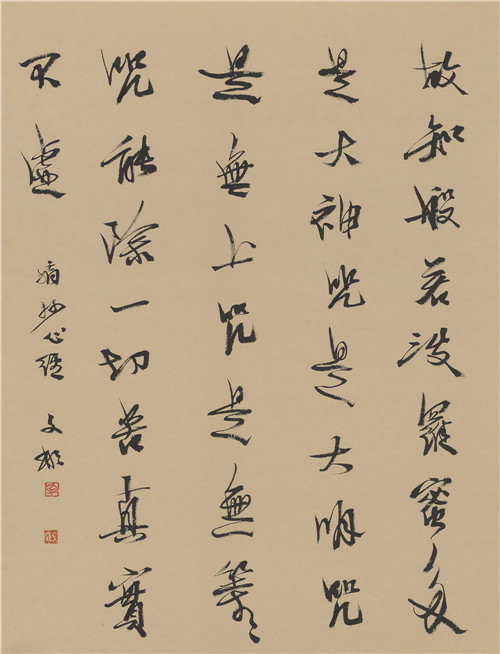 故知般若波羅蜜多
是大神咒是大明咒
是無上咒是無等〻
咒能除一切苦真實
不虛
摘抄心經 文